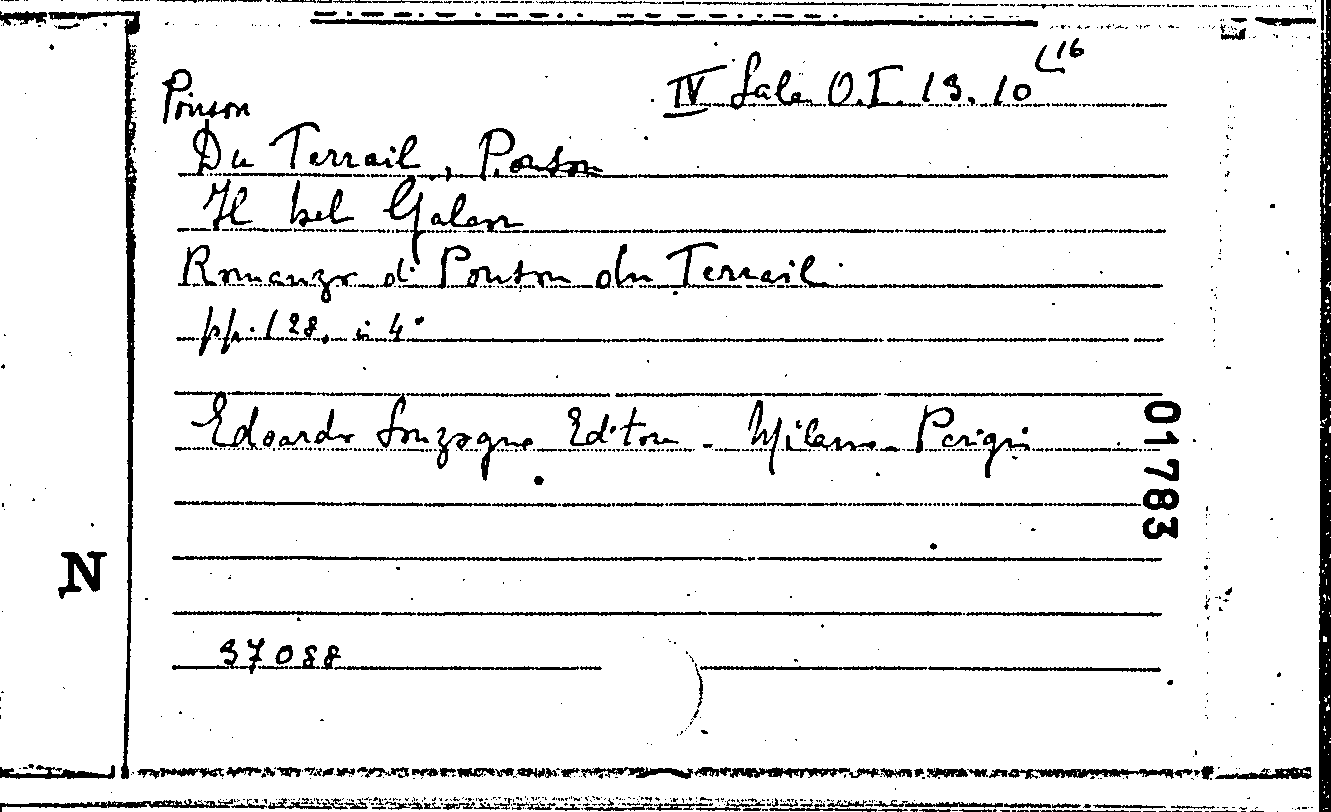 IV Sala O.I. 13. 10 (16
Ponson
Du Terrail, Ponson
Il bel Galaor
Romanzo di Ponson du Terrail
pp. 128, in 4°
Edoardo Sonzogno Editore - Milano - Parigi
01783
N
37088